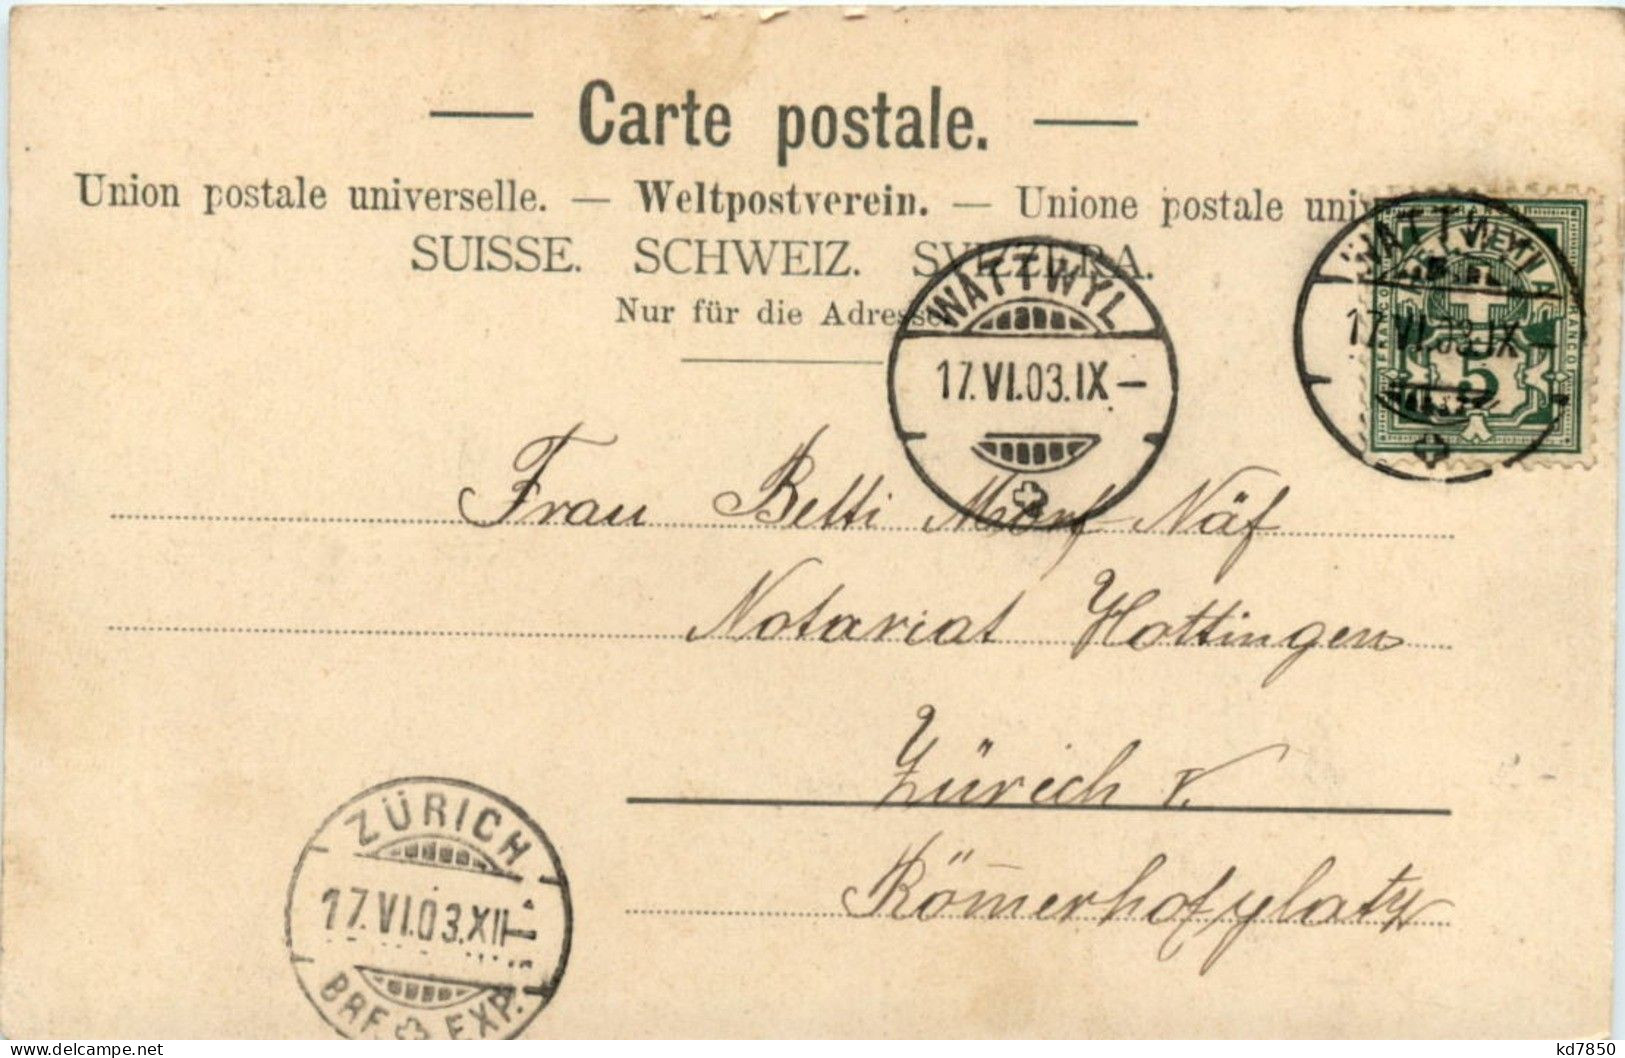 — Carte postale. —
Union postale universelle. — Weltpostverein. — Unione postale uni
SUISSE. SCHWEIZ. SVIZZERA.
Nur für die Adresse.
WATTWYL
17.VI.03.IX–
WATTWYL
17.VI.03.IX–
FRANCO
5
Frau Betti Morf-Näf
Notariat Hottingen
Zürich V.
Römerhofplatz
ZÜRICH
17.VI.03.XII–
BRF. EXP.
kd7850